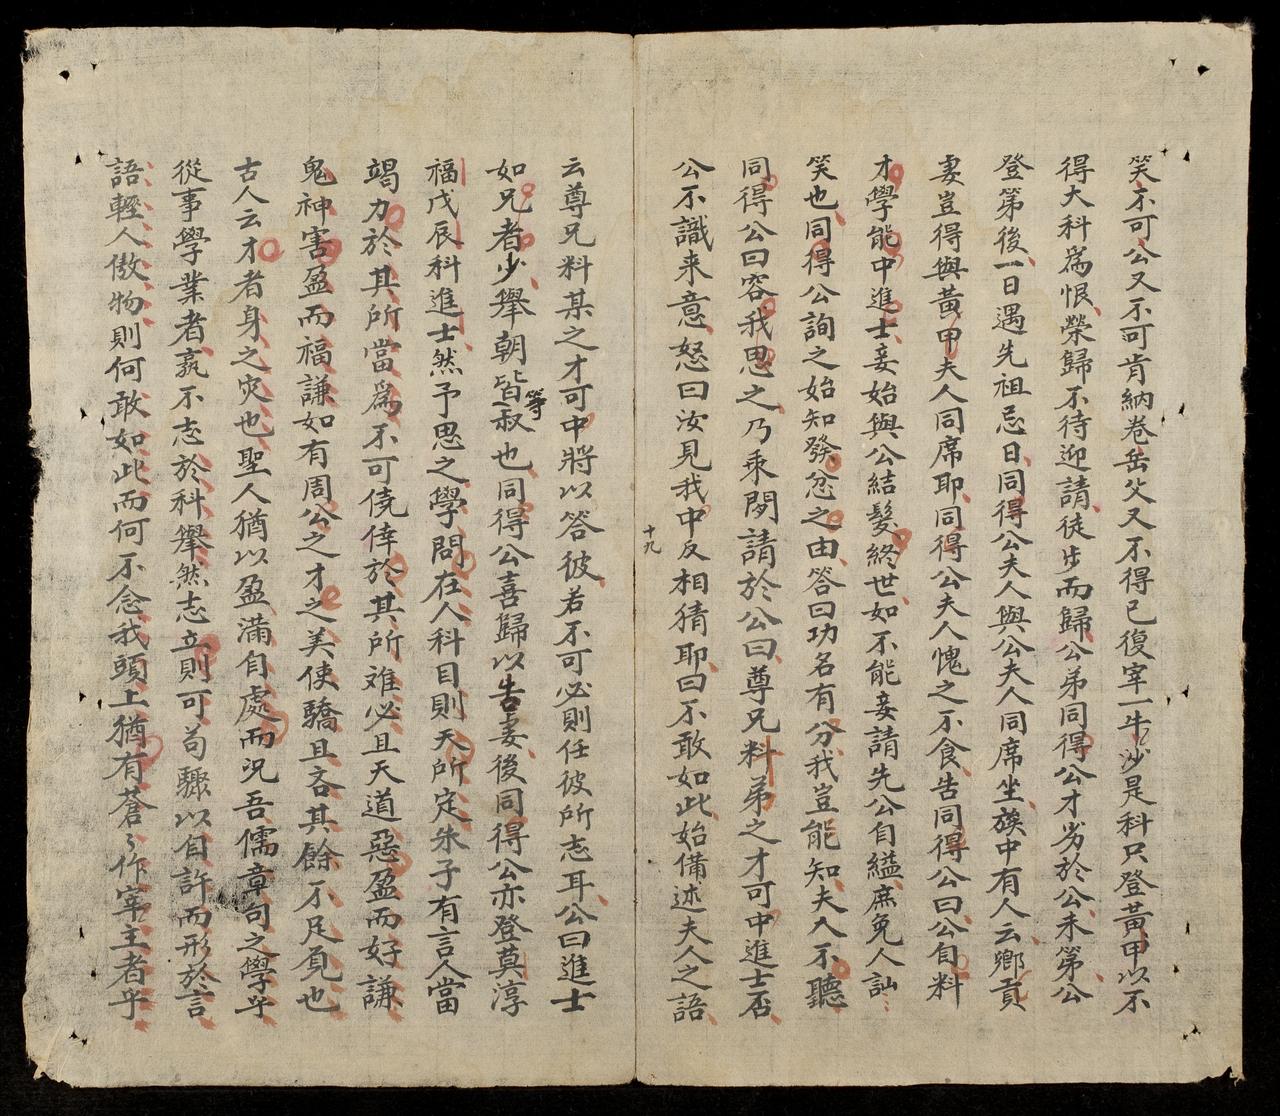 笑不可公又不可肯納卷岳父又不得已復宰一牛沙是科只登黃甲以不
得大科爲恨榮歸不待迎請徒步而歸公弟同得公才劣於公未第公
登第後一日遇先祖忌日同得公夫人與公夫人同席坐磢中有人云鄉貢
妻豈得與黃甲夫人同席耶同得公夫人愧之不食告同得公曰公自料
才學能中進士妾始與公結髮終世如不能妾請先公自縊庶免人訕
笑也同得公詢之始知發忿之由答曰功名有分我豈能知夫人不聽
同得公曰容我思之乃乘閒請於公曰尊兄料弟之才可中進士否
公不識来意怒曰汝見我中反相猜耶曰不敢如此始備述夫人之語
十九
云尊兄料某之才可中將以答彼若不可必則任彼所志耳公曰進士
如兄者少舉朝皆叔等也同得公喜歸以告妻後同得公亦登莫淳
福戊辰科進士然予思之學問在人科目則天所定朱子有言人當
竭力於其所當爲不可僥倖於其所难必且天道惡盈而好謙
鬼神害盈而福謙如有周公之才之美使驕且吝其餘不足覓也
古人云才者身之灾也聖人猶以盈滿自處而况吾儒章句之學乎
從事學業者孰不志於科舉然志立則可苟驟以自許而形於言
語輕人傲物則何敢如此而何不念我頭上猶有蒼〻作宰主者乎